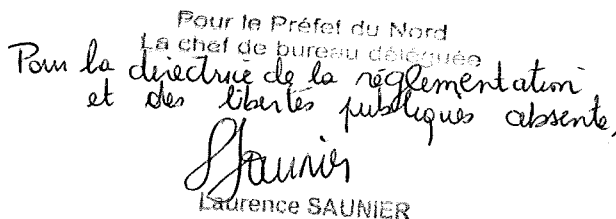 Pour le Préfet du Nord
La chef de bureau déléguée
Pour la directrice de la réglementation
et des libertés publiques absente,
Saunier
Laurence SAUNIER